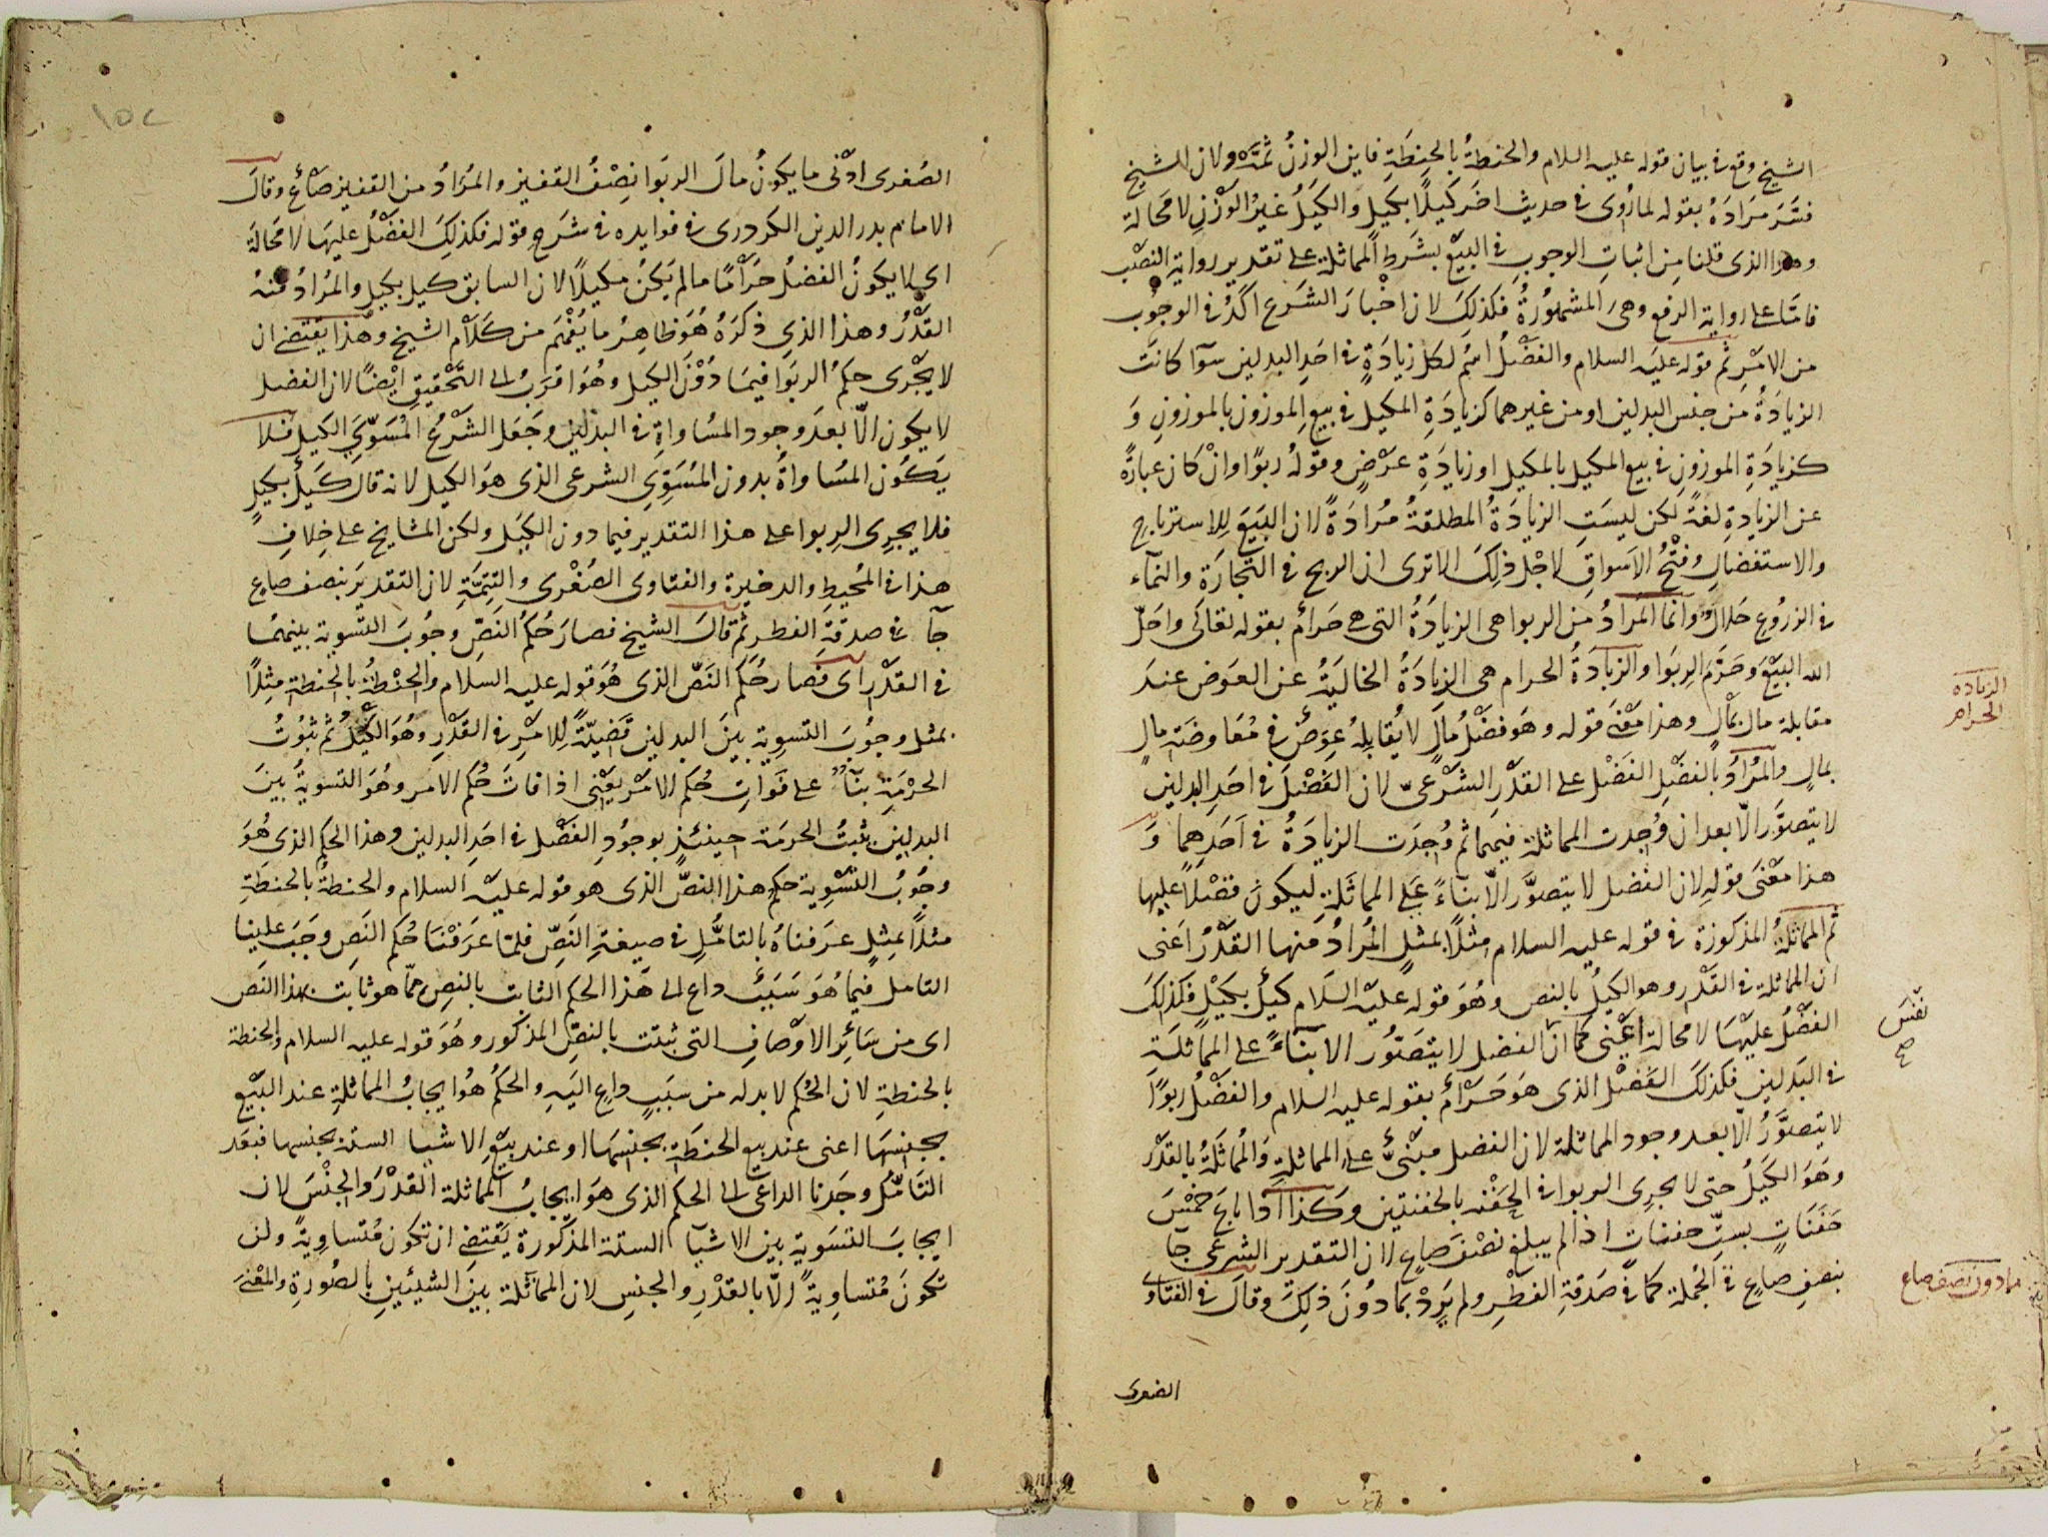 الشيخ وقع في بيان قوله عليه السلام والحنطةُ بالحِنطَةِ فاين الوزنُ ثمَّهْ ولان الشيخ
فسَّرَ مرَادَهُ بقوله لما رُوى في حديث اخَر كَيلًا بكَيلٍ وَالكَيلُ غيرُ الوَزْنِ لا مَحالة
وهذا الذى قلنا مِن اثباتِ الوجوبِ في البيْع بشَرطِ المماثلة على تقدير رواية النصْب
فامّا على رواية الرفع وهىَ المشهُورةُ فكذلكَ لان اخْبارَ الشرَع اكَدُ في الوجُوب
من الامْرِ ثم قوله عليَه السلام والفضْلُ اسمٌ لكل زيادَةٍ في احَدِ البدلين سوَآ كانتْ
الزيادَةُ مَن جنس البدلين او من غيرهما كزيادَةِ المكيل في بيعِ الموزون بالموزونِ وَ
كزيادَةِ الموزون في بيع المكيل بالمكيل او زيادَةِ عرَضٍ وقولهُ ربوًا وانْ كان عبارةً
عن الزيادةِ لغةً لكن ليسَتِ الزيادَةُ المطلقةُ مُرادَةً لان البَيعَ للاسترباحِ
والاستفضالِ وفتْحُ الاَسواقِ لاجْلِ ذلِكَ الا ترى ان الربح في التجارَةِ والنماء
في الزرُوعِ حَلالٌ وانما المرَادُ مِن الربوا هى الزيادَةُ التى هى حَرامٌ بقوله تعَالَى واحَلّ
الله البَيْعَ وحَرَّم الرِبوَا والزيادَةُ الحرام هى الزيادَةُ الخاليَةُ عن العوَض عندَ
مقابلة مال بمَالٍ وهذا معْنَى قوله وهَو فضْلُ مُالٍ لا يُقابلِهُ عِوَضٌ في مُعَاوضَة مالٍ
بمالٍ والمُرَادُ بالفضْلِ الفضْل على القدْرِ الشَرْعىّ لان الفضْلَ في احَدِ البدلين
لا يتصوَّر الّا بعد ان وُجدت المماثلة فيهما ثم وُجدَت الزيادَةُ في اَحَدِهما وَ
هذا معْنَى قولهِ لان الفَضل لا يتصوَّر الّا بناءً على المماثَلَةِ ليكونَ فضْلًا عليها
ثم المماثلةُ المذكورة في قوله عليه السلام مثلًا بمثلٍ المُرادُ منها القدْرُ اَعنى
ان المماثلة في القدْر وهو الكيلُ بالنص وهُوَ قوله عليْه السَلام كيْلٌ بكَيْلٍ فكذلكَ
الفضْلُ عليْهَا لا محالة اعْنى كما انّ الفضل لا يتَصَوَّر الا بناءً على المماثلَةِ
في البَدلين فكذلكَ الفضْل الذى هَوَ حَرَامٌ بقوله عليه السلام والفضْلُ ربوًا
لا يتصوَّرُ الّا بعد وجود المماثلة لان الفضل مبْنىٌّ على المماثلةِ وَالمُماثَلَةُ بالقدْر
وهَوَ الكَيلُ حتى لا يجرى الربوا في الحَفْنه بالحفنتين وكَذا اذا باعَ خمْسَ
حَفَنَاتٍ بستِّ حفنات اذا لم يبلغ نصْفَ صاع لان التقدير الشرعى جآ
بنصفِ صاعٍ في الجُملة كما في صَدقَةِ الفطْرِ ولم يَردْ بما دُونَ ذلِكَ وقالَ في الفتاوى
الصغرى
الزياده
الحرام
نفس
صح
ما دون نصف صاع
١٥٢
الصُغرى ادْنى ما يكونُ مالَ الربَوا نِصْفُ القفيز والمُرَادُ من القفيز صَاعٌ وقالَ
الامام بدر الدين الكردرى في فوايده في شَرحِ قوله فكذلِكَ الفضْلُ عليهَا لا مَحَالة
اى لا يكونُ الفضلُ حَرَامًا ما لم يَكنْ مكيلًا لان السابق كيل بكيلٍ والمُرَادُ منهُ
القدْرُ وهذا الذى ذكَرَهُ هُوَ ظاهِرُ ما يُفْهَم من كَلام الشيخ وهَذا يَقتَضى ان
لا يجْرى حكمُ الربَوا فيمَا دُوْنَ الكيل وهُوَ اقرَبُ الى التَّحْقيقِ ايْضًا لان الفضل
لا يكون الّا بعدَ وجود المسُاواةِ في البدْلين وجَعَل الشَرْعُ المُسَوّىَ الكيل فَلا
يَكُون المسَاواةُ بدون المُسَوِّى الشرعى الذى هَو الكيل لانه قال كَيلٌ بكيلٍ
فلا يجرِى الرِبوا على هذا التقدير فيما دون الكَيل ولكن المشايخ على خِلافِ
هذا في المُحيطِ والدخيرة والفتاوى الصُغْرى والتتِمَّةِ لان التقديَر بنصف صاع
جآ في صدقةِ الفطر ثم قالَ الشيخ فصارَ حُكمُ النَصِّ وجُوبَ التسْوية بينهمُا
في القدْر اى فصار حُكم النَصّ الذى هُوَ قوله عليه السلام والحنْطةُ بالحنطةِ مِثلًا
بمثل وجُوبَ التسوِية بَينَ البدلين قَضيّةً لِلامْرِ في القَدْرِ وهُوَ الكَيْلُ ثم ثبُوتُ
الحرْمَةِ بنآءً على فوَاتِ حُكم الامْرِ يَعْنى اذا فاتَ حُكم الامر وهُوَ التسوِيةَ بَينَ
البدلين ثبتُ الحرمَة حينئذٍ بوجُودِ الفَضْل في احَدِ البدلين وهذا الحكم الذى هُوَ
وجُوبُ التسْوِية حكم هذا النَصّ الذى هو قوله عليْه السلام والحنطةُ بالحنطَةِ
مثلًا بمثِلٍ عرَفناهُ بالتامُّلِ في صيغةِ النَصّ فلمّا عرَفْنَا حُكم النَصِ وجَبَ علينا
التامل فيما هُوَ سَبَبٌ داع الى هَذا الحكم الثابت بالنصِ ممّا هو ثابت بهذا النَص
اى من سَائِر الاوْصافِ التى ثبتت بالنصّ المذكور وهُوَ قوله عليه السلام والحنطة
بالحنطةِ لان الحُكم لا بد له من سبَبٍ داعٍ اليَهِ والحكمُ هُوَ ايجابُ المماثلةِ عند البَيْع
بجنسِهَا اعنى عند بيع الحنطَة بجنسِهَا او عند بيْع الاشيا الستة بجنسها فبعَد
التَّامُّل وجَدنا الداعىَ الى الحكم الذى هَو ايجابُ المماثلة القدْرَ والجنْسَ لان
ايجابَ التسَوية بين الاشيآ الستة المذكورة يَقتَضى ان تكون مُتساوِيةً ولن
تكونَ مُتساوِيةً الّا بالقدْرِ والجنسِ لان المماثلة بينَ الشيئينِ بالصُورةِ والمعْنَى